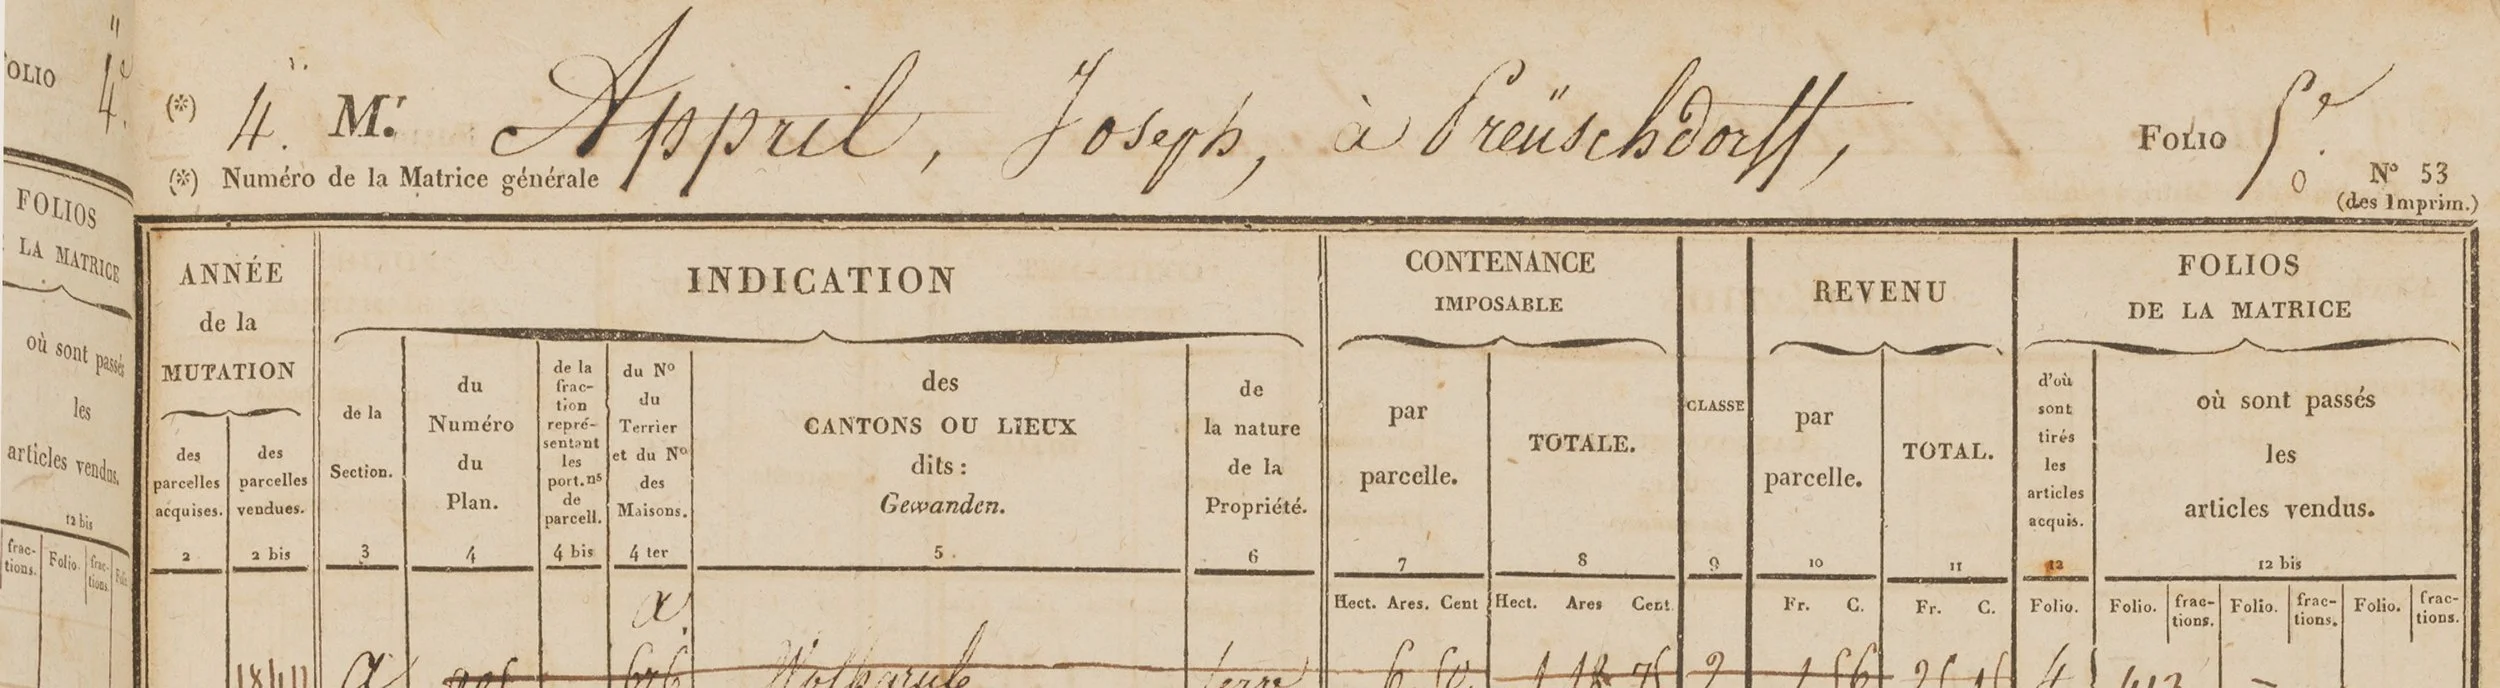 "
FOLIO 4e.
(*) 4. Mr. Appril, Joseph, à Preüschdorff, FOLIO 5e.
(*) Numéro de la Matrice générale
0 N° 53
(des Imprim.)
FOLIOS
LA MATRICE
où sont passés
les
articles vendus.
12 bis
frac-
tions. Folio. frac-
tions.
ANNÉE
de la
MUTATION
des
parcelles
acquises.
2
des
parcelles
vendues.
2 bis
INDICATION
de la
Section.
3
du
Numéro
du
Plan.
4
de la
frac-
tion
repré-
sentant
les
port.ns
de
parcell.
4 bis
du No
du
Terrier
et du No
des
Maisons.
4 ter
des
CANTONS OU LIEUX
dits :
Gewanden.
5.
de
la nature
de la
Propriété.
6
CONTENANCE
IMPOSABLE
par
parcelle.
7
Hect. Ares. Cent
TOTALE.
8
Hect. Ares Cent.
CLASSE
9
REVENU
par
parcelle.
10
Fr. C.
TOTAL.
11
Fr. C.
FOLIOS
DE LA MATRICE
d'où
sont
tirés
les
articles
acquis.
12
Folio.
où sont passés
les
articles vendus.
12 bis
Folio. frac-
tions. Folio. frac-
tions. Folio. frac-
tions.
a.